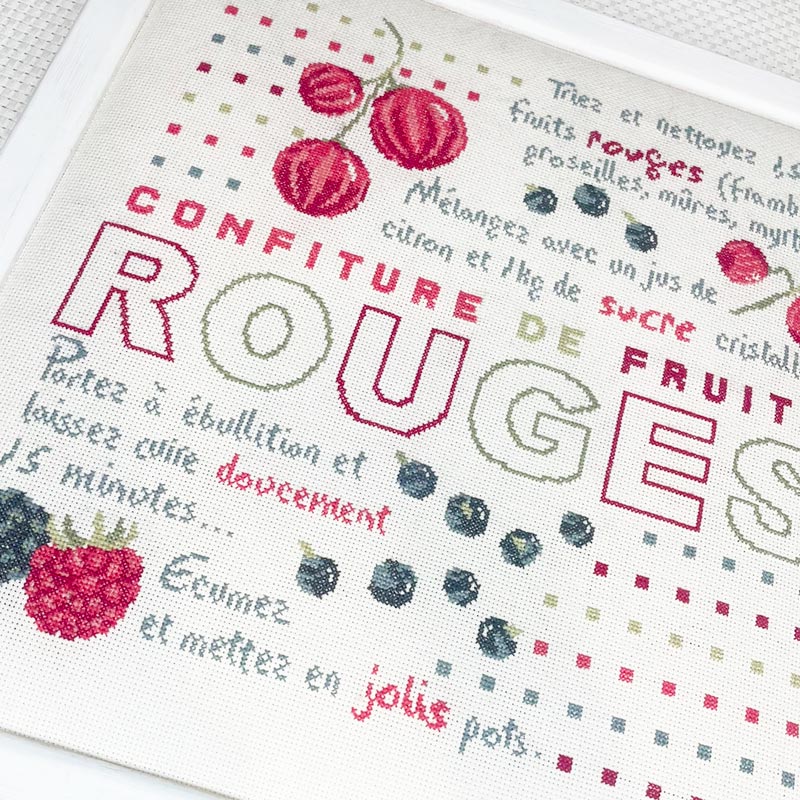 Triez et nettoyez
fruits rouges (framb
groseilles, mûres, myrt
Mélangez avec un jus de
citron et 1kg de sucre cristall
CONFITURE DE FRUIT
ROUGES
Portez à ébullition et
laissez cuire doucement
15 minutes...
Écumez
et mettez en jolis pots...